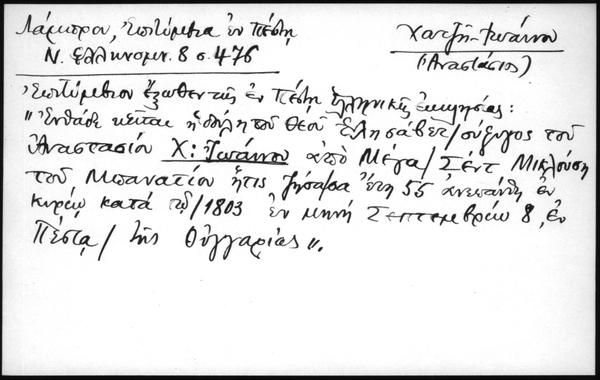 Λάμπρου, Ἐπιτύμβια ἐν Πέστῃ
Ν. Ἑλληνομν. 8 σ. 476
Χατζῆ-Ἰωάννου
(Ἀναστάσιος)
Ἐπιτύμβιον ἔξωθεν τῆς ἐν Πέστῃ ἑλληνικῆς ἐκκλησίας:
"Ἐνθάδε κεῖται ἡ δούλη τοῦ Θεοῦ Ἐλησάβετ/σύζυγος τοῦ
Ἀναστασίου Χ: Ἰωάννου ἀπὸ Μέγα/Σέντ Μικλούση
τοῦ Μπανατίου ἥτις ζήσασα ἔτη 55 ἀνεπαύθη ἐν
κυρίῳ κατὰ τῷ/1803 ἐν μηνῇ Σεπτεμβρίῳ 8, ἐν
Πέστᾳ/τῆς Οὐγγαρίας".